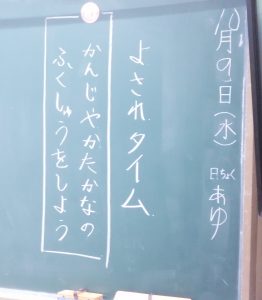 10月9日(水)
日ちょく あゆ
よされタイム
かんじやかたかなの
ふくしゅうをしよう